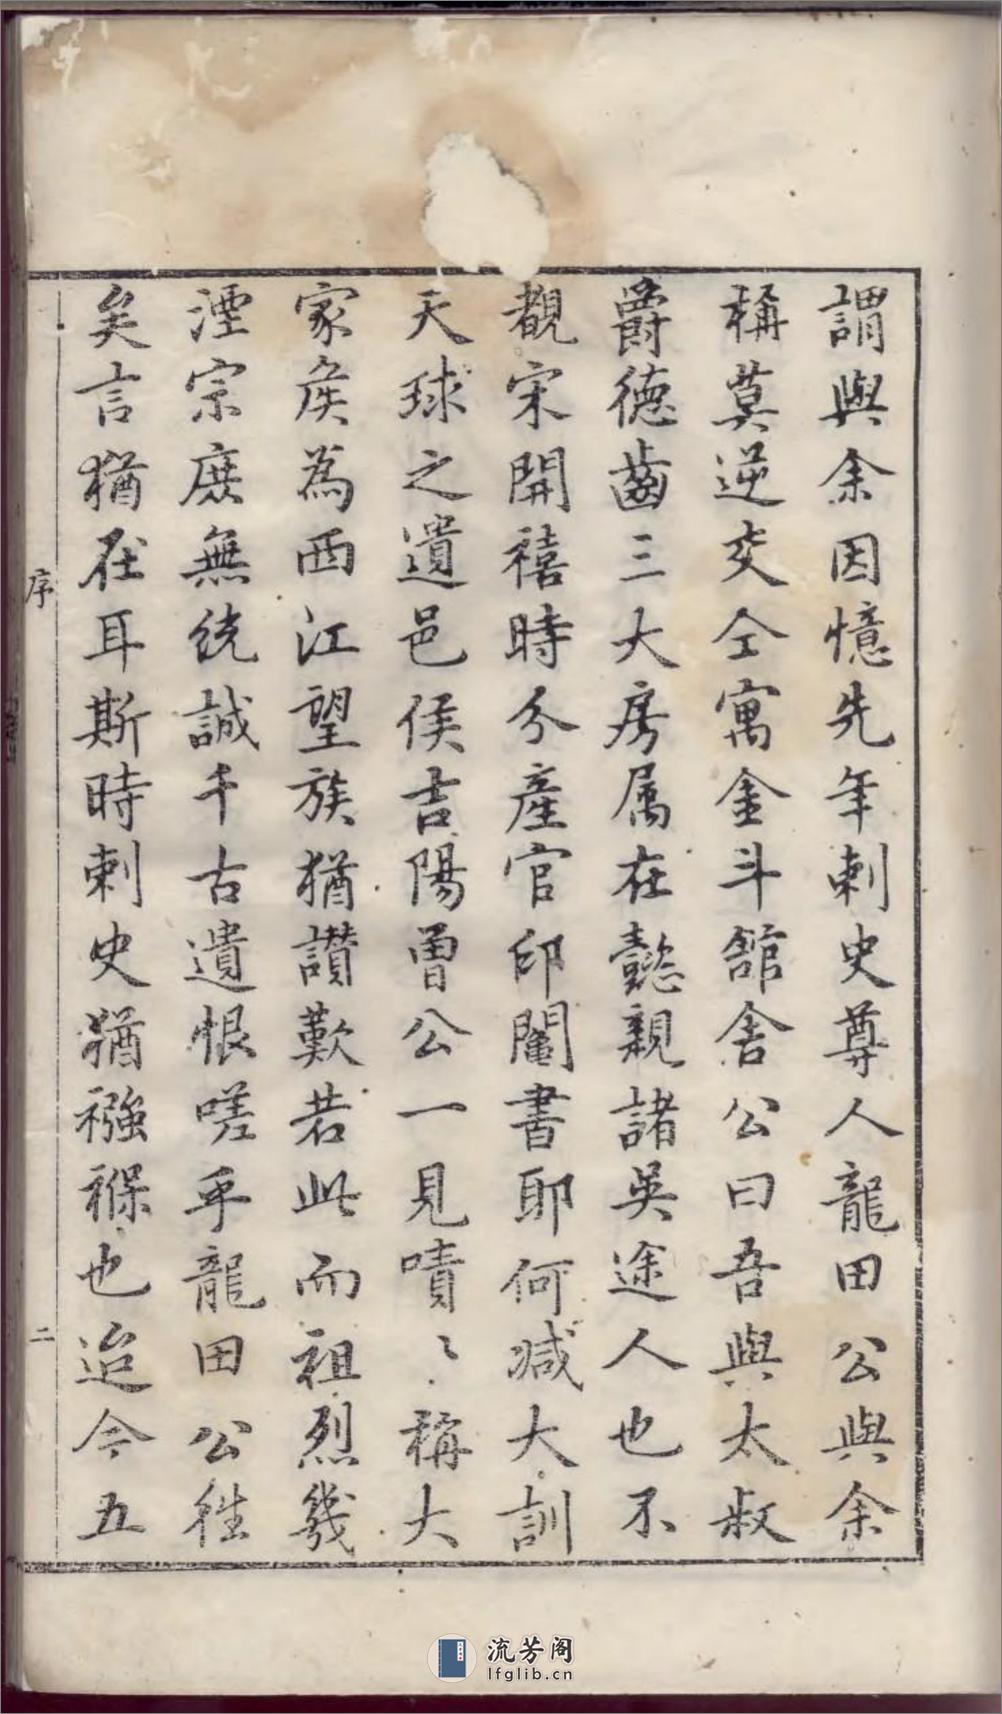 謂與余因憶先年刺史尊人龍田公與余
稱莫逆交仝寓金斗舘舍公曰吾與太叔
爵德齒三大房属在懿親諸吳途人也不
覩宋開禧時分產官印鬮書耶何减大訓
天球之遺邑侯吉陽曾公一見嘖〻稱大
家矦為西江望族猶讃歎若此而祖烈幾
湮宗庶無統誠千古遺恨嗟乎龍田公徃
矣言猶在耳斯時刺史猶襁褓也迨今五
序
二
流芳阁
lfglib.cn